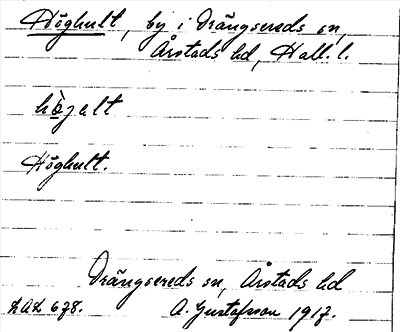 Höghult, by i Drängsereds sn,
Årstads hd, Hall. l.
hö̀galt
Höghult.
Drängsereds sn, Årstads hd
LAL 678. A. Gustafsson 1917.